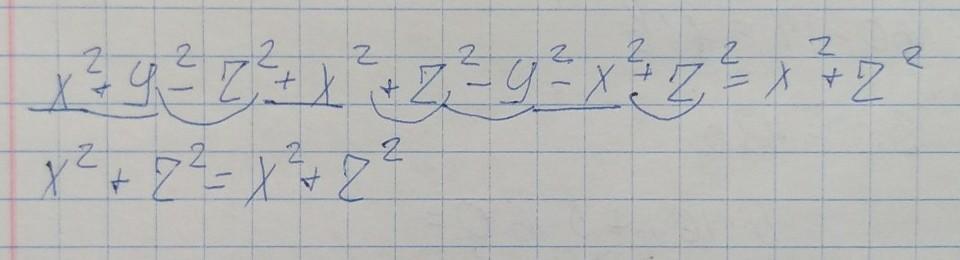 x² + y² - z² + x² + z² - y² - x² + z² = x² + z²
x² + z² = x² + z²